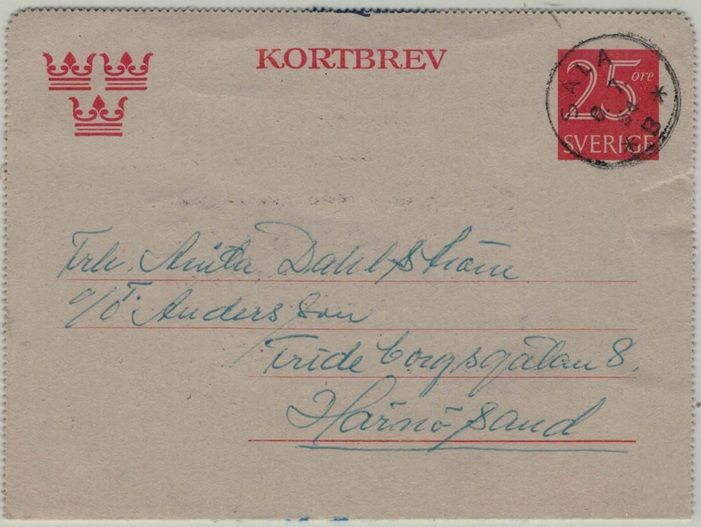 KORTBREV
25 öre
SVERIGE
SALA
B
Frk. Anita Dahlström
c/o T. Andersson
Frideborgsgatan 8.
Härnösand